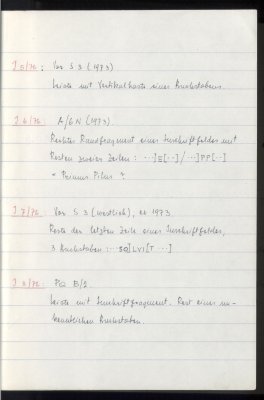 I 5/76: Vor S 3 (1973)
Leiste mit Vertikalhaste eines Buchstabens.
I 6/76: A/6 N (1973).
Rechtes Randfragment eines Inschriftfeldes mit
Resten zweier Zeilen: ···]E[··]/···]PP[··]
= Primus Pilus ?
I 7/76: Vor S 3 (westlich), 1973.
Reste der letzten Zeile eines Inschriftfeldes,
3 Buchstaben: ···]LVI[T ···]
I 8/76: B/2
Leiste mit Inschriftfragment. Rest eines un-
kenntlichen Buchstaben.